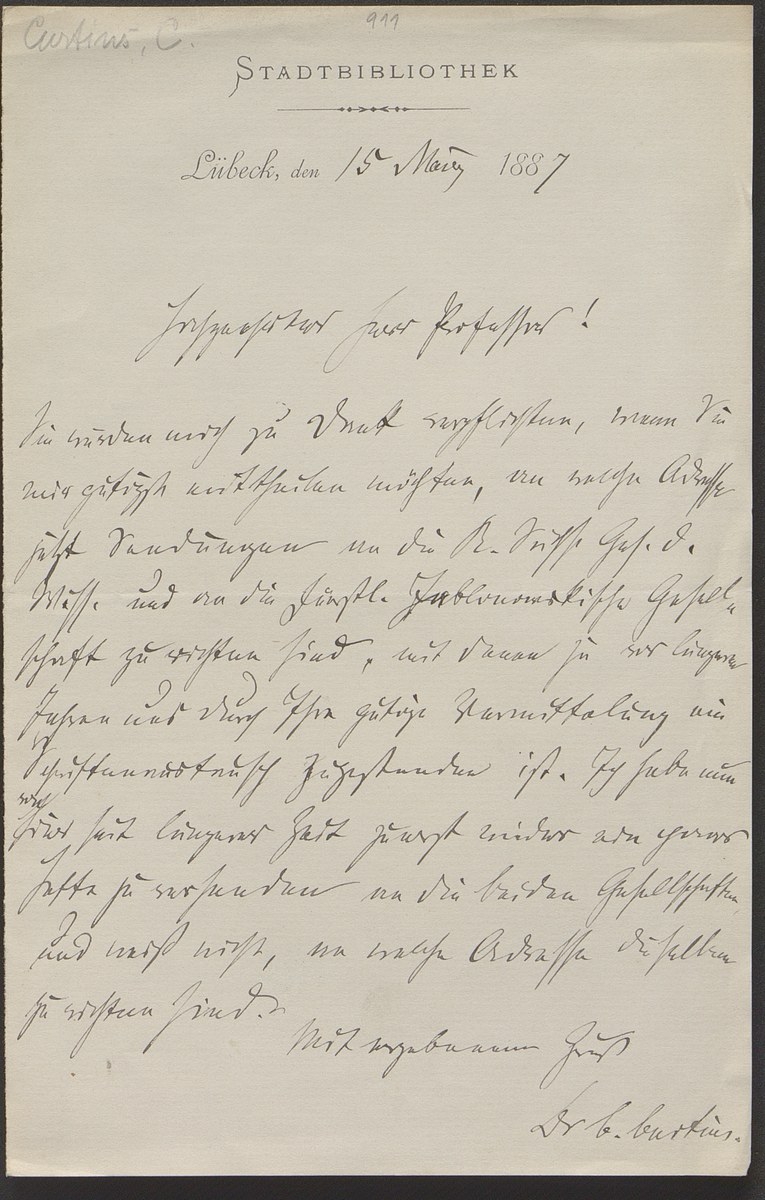 Curtius, C.
911
STADTBIBLIOTHEK
Lübeck, den 15 März 1887
Hochgeehrter Herr Professor!
Sie würden mich zu Dank verpflichten, wenn Sie
mir gütigst mittheilen möchten, an welche Adresse
jetzt Sendungen an die K. Sächs. Ges. d.
Wiss. und an die Fürstl. Jablonowskische Gesell-
schaft zu richten sind, mit denen ja vor längeren
Jahren uns durch Ihre gütige Vermittelung ein
Schriftenaustausch zugestanden ist. Ich habe nun
seit längerer Zeit zuerst wieder ein paar
Hefte zu versenden an die beiden Gesellschaften
und weiß nicht, an welche Adresse dieselben
zu richten sind.
Mit ergebenem Gruß
Dr C. Curtius.